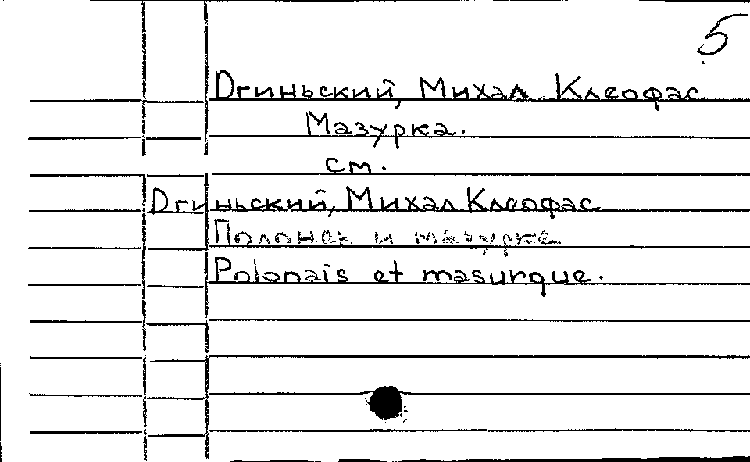 5
Огиньский, Михал Клеофас
Мазурка.
см.
Огиньский, Михал Клеофас
Полонез и мазурка
Polonais et masurque.